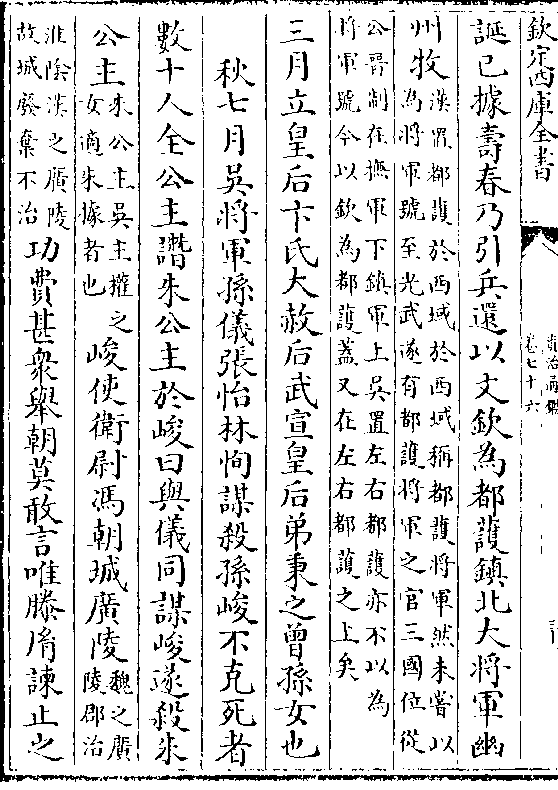 欽定四庫全書
資治通鑑
卷七十六
誕已據壽春乃引兵還以文欽為都護鎮北大將軍幽
州牧漢置都護於西域於西域稱都護將軍然未嘗以
為將軍號至光武遂有都護將軍之官三國位從
公晉制在撫軍下鎮軍上吳置左右都護亦不以為
將軍號今以欽為都護蓋又在左右都護之上矣
三月立皇后卞氏大赦后武宣皇后弟秉之曾孫女也
秋七月吳將軍孫儀張怡林恂謀殺孫峻不克死者
數十人全公主譖朱公主於峻曰與儀同謀峻遂殺朱
公主朱公主吳主權之
女適朱據者也峻使衛尉馮朝城廣陵魏之廣
陵郡治
淮陰漢之廣陵
故城廢棄不治功費甚衆舉朝莫敢言唯滕胤諫止之